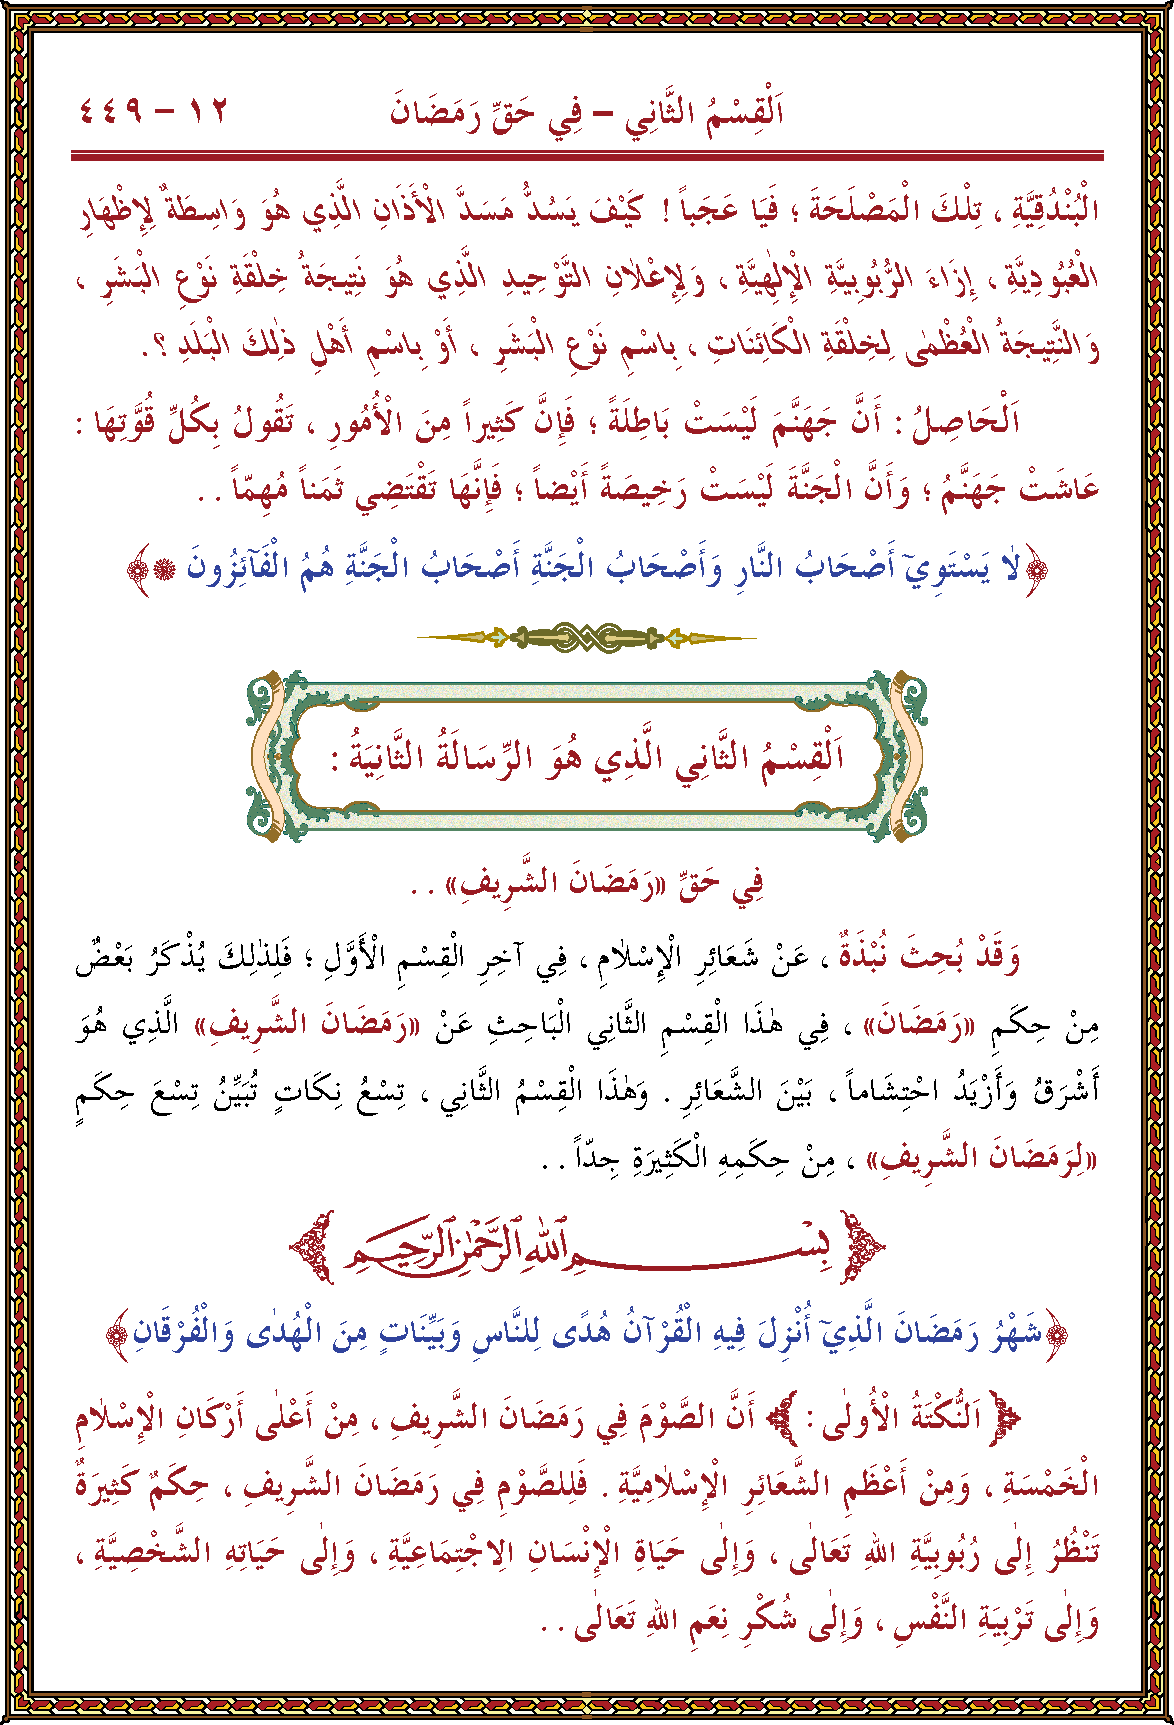 اَلْقِسْمُ الثَّانِي – فِي حَقِّ رَمَضَانَ ١٢ – ٤٤٩
الْبُنْدُقِيَّةِ ، تِلْكَ الْمَصْلَحَةَ ؛ فَيَا عَجَباً ! كَيْفَ يَسُدُّ مَسَدَّ الْأَذَانِ الَّذِي هُوَ وَاسِطَةٌ لِإِظْهَارِ
الْعُبُودِيَّةِ ، إِزَاءَ الرُّبُوبِيَّةِ الْإِلٰهِيَّةِ ، وَلِإِعْلَانِ التَّوْحِيدِ الَّذِي هُوَ نَتِيجَةُ خِلْقَةِ نَوْعِ الْبَشَرِ ،
وَالنَّتِيجَةُ الْعُظْمٰى لِخِلْقَةِ الْكَائِنَاتِ ، بِاسْمِ نَوْعِ الْبَشَرِ ، أَوْ بِاسْمِ أَهْلِ ذٰلِكَ الْبَلَدِ ؟.
اَلْحَاصِلُ : أَنَّ جَهَنَّمَ لَيْسَتْ بَاطِلَةً ؛ فَإِنَّ كَثِيراً مِنَ الْأُمُورِ ، تَقُولُ بِكُلِّ قُوَّتِهَا :
عَاشَتْ جَهَنَّمُ ؛ وَأَنَّ الْجَنَّةَ لَيْسَتْ رَخِيصَةً أَيْضاً ؛ فَإِنَّهَا تَقْتَضِي ثَمَناً مُهِمّاً . .
﴿لَا يَسْتَوِيٓ أَصْحَابُ النَّارِ وَأَصْحَابُ الْجَنَّةِ أَصْحَابُ الْجَنَّةِ هُمُ الْفَآئِزُونَ ۞﴾
اَلْقِسْمُ الثَّانِي الَّذِي هُوَ الرِّسَالَةُ الثَّانِيَةُ :
فِي حَقِّ «رَمَضَانَ الشَّرِيفِ» . .
وَقَدْ بُحِثَ نُبْذَةٌ ، عَنْ شَعَائِرِ الْإِسْلَامِ ، فِي آخِرِ الْقِسْمِ الْأَوَّلِ ؛ فَلِذٰلِكَ يُذْكَرُ بَعْضٌ
مِنْ حِكَمِ «رَمَضَانَ» ، فِي هٰذَا الْقِسْمِ الثَّانِي الْبَاحِثِ عَنْ «رَمَضَانَ الشَّرِيفِ» الَّذِي هُوَ
أَشْرَقُ وَأَزْيَدُ احْتِشَاماً ، بَيْنَ الشَّعَائِرِ . وَهٰذَا الْقِسْمُ الثَّانِي ، تِسْعُ نِكَاتٍ تُبَيِّنُ تِسْعَ حِكَمٍ
«لِرَمَضَانَ الشَّرِيفِ» ، مِنْ حِكَمِهِ الْكَثِيرَةِ جِدّاً . .
بِسْمِ اللهِ الرَّحْمٰنِ الرَّحِيمِ
﴿شَهْرُ رَمَضَانَ الَّذِيٓ أُنْزِلَ فِيهِ الْقُرْآنُ هُدًى لِلنَّاسِ وَبَيِّنَاتٍ مِنَ الْهُدٰى وَالْفُرْقَانِ﴾
﴿اَلنُّكْتَةُ الْأُولٰى :﴾ أَنَّ الصَّوْمَ فِي رَمَضَانَ الشَّرِيفِ ، مِنْ أَعْلٰى أَرْكَانِ الْإِسْلَامِ
الْخَمْسَةِ ، وَمِنْ أَعْظَمِ الشَّعَائِرِ الْإِسْلَامِيَّةِ . فَلِلصَّوْمِ فِي رَمَضَانَ الشَّرِيفِ ، حِكَمٌ كَثِيرَةٌ
تَنْظُرُ إِلٰى رُبُوبِيَّةِ اللهِ تَعَالٰى ، وَإِلٰى حَيَاةِ الْإِنْسَانِ الِاجْتِمَاعِيَّةِ ، وَإِلٰى حَيَاتِهِ الشَّخْصِيَّةِ ،
وَإِلٰى تَرْبِيَةِ النَّفْسِ ، وَإِلٰى شُكْرِ نِعَمِ اللهِ تَعَالٰى . .